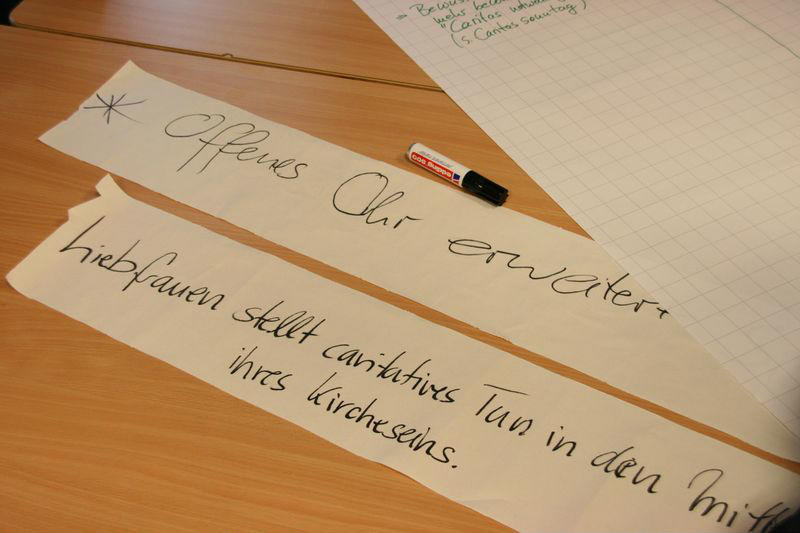 ⇒ Bewusst
mehr
"Caritas
(s. Caritassonntag)
* Offenes Ohr erweiter
edding 800
Liebfrauen stellt caritatives Tun in den Mitt
ihres Kircheseins.